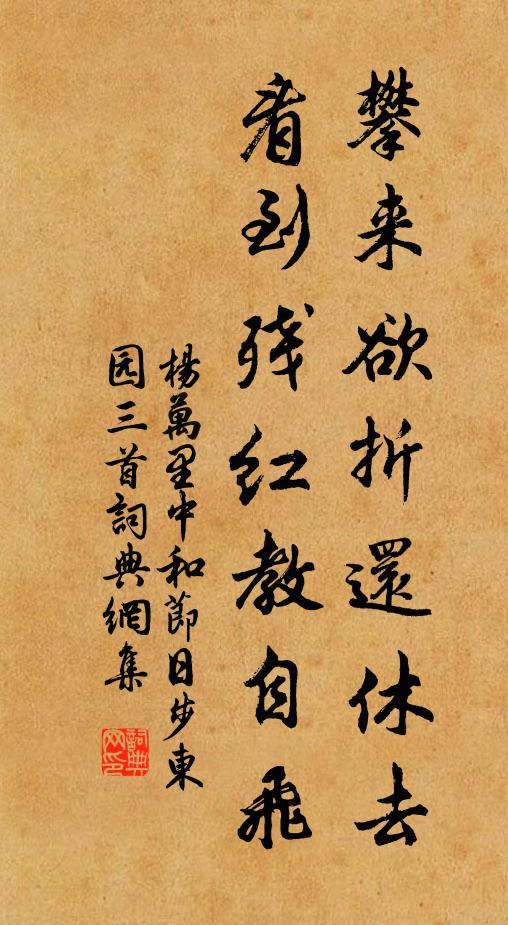 攀来欲折還休去
看到残红教自飛
楊萬里中和節日步東
园三首詞典網集
詞典網印